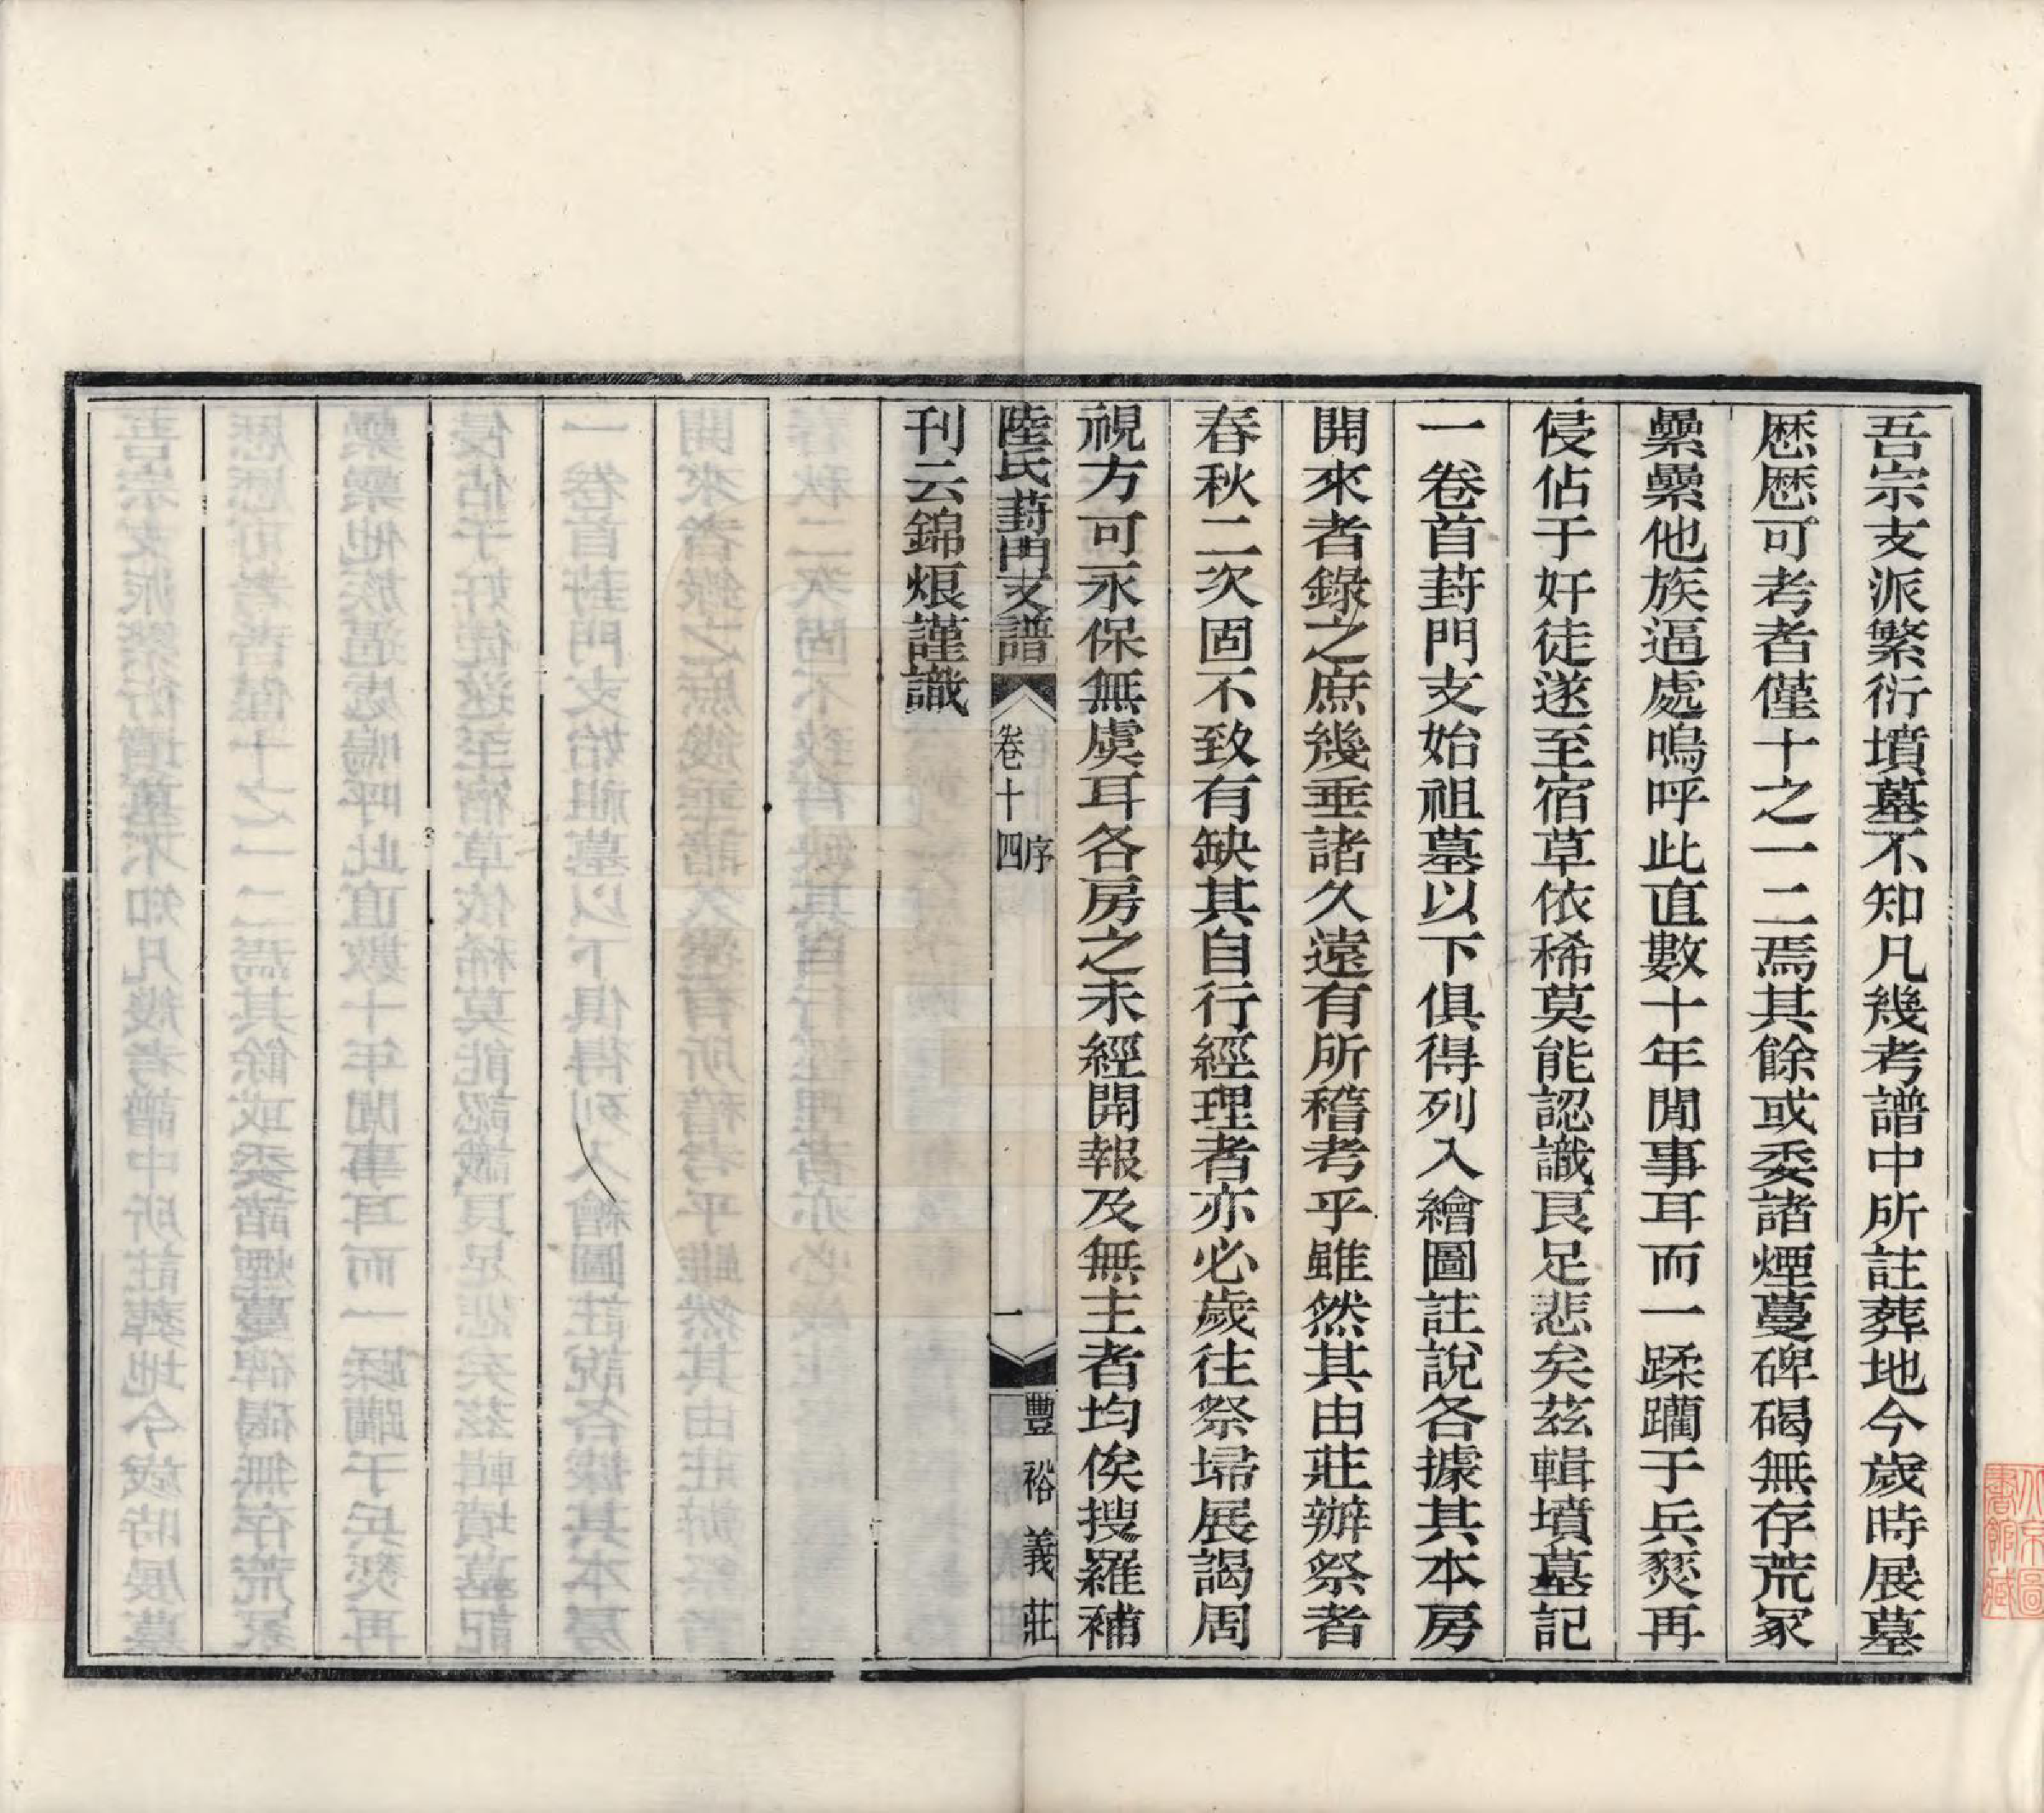 吾宗支派繁衍墳墓不知凡幾考譜中所註葬地今歲時展墓
歷歷可考者僅十之一二焉其餘或委諸煙蔓碑碣無存荒冢
纍纍他族逼處嗚呼此直數十年閒事耳而一蹂躪于兵燹再
侵佔于奸徒遂至宿草依稀莫能認識良足悲矣茲輯墳墓記
一卷首葑門支始祖墓以下俱得列入繪圖註說各據其本房
開來者錄之庶幾垂諸久遠有所稽考乎雖然其由莊辦祭者
春秋二次固不致有缺其自行經理者亦必歲往祭埽展謁周
視方可永保無虞耳各房之未經開報及無主者均俟搜羅補
陸氏葑門支譜 卷十四 序 一 豐裕義莊
刊云錦烺謹識